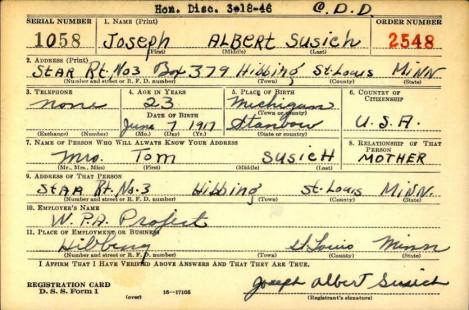 Hon. Disc. 3-18-46 C.D.D
SERIAL NUMBER 1. NAME (Print) ORDER NUMBER
1058 Joseph ALBERT Susich 2548
(First) (Middle) (Last)
2. ADDRESS (Print)
STAR Rt. No3 Box 379 Hibbing St-Louis MINN
(Number and street or R. F. D. number) (Town) (County) (State)
3. TELEPHONE 4. AGE IN YEARS 5. PLACE OF BIRTH 6. COUNTRY OF CITIZENSHIP
none 23 Michigan
DATE OF BIRTH (Town or county)
June 7 1917 U.S.A.
(Exchange) (Number) (Mo.) (Day) (Yr.) (State or country)
7. NAME OF PERSON WHO WILL ALWAYS KNOW YOUR ADDRESS 8. RELATIONSHIP OF THAT PERSON
Mrs. Tom SusicH MOTHER
(Mr., Mrs., Miss) (First) (Middle) (Last)
9. ADDRESS OF THAT PERSON
STAR Rt. No-3 Hibbing St-Louis MINN.
(Number and street or R. F. D. number) (Town) (County) (State)
10. EMPLOYER'S NAME
W.P.A. Project
11. PLACE OF EMPLOYMENT OR BUSINESS
Hibbing St Louis Minn
(Number and street or R. F. D. number) (Town) (County) (State)
I AFFIRM THAT I HAVE VERIFIED ABOVE ANSWERS AND THAT THEY ARE TRUE.
REGISTRATION CARD
D. S. S. Form 1 (over) 16—17105
Joseph Albert Susich
(Registrant's signature)